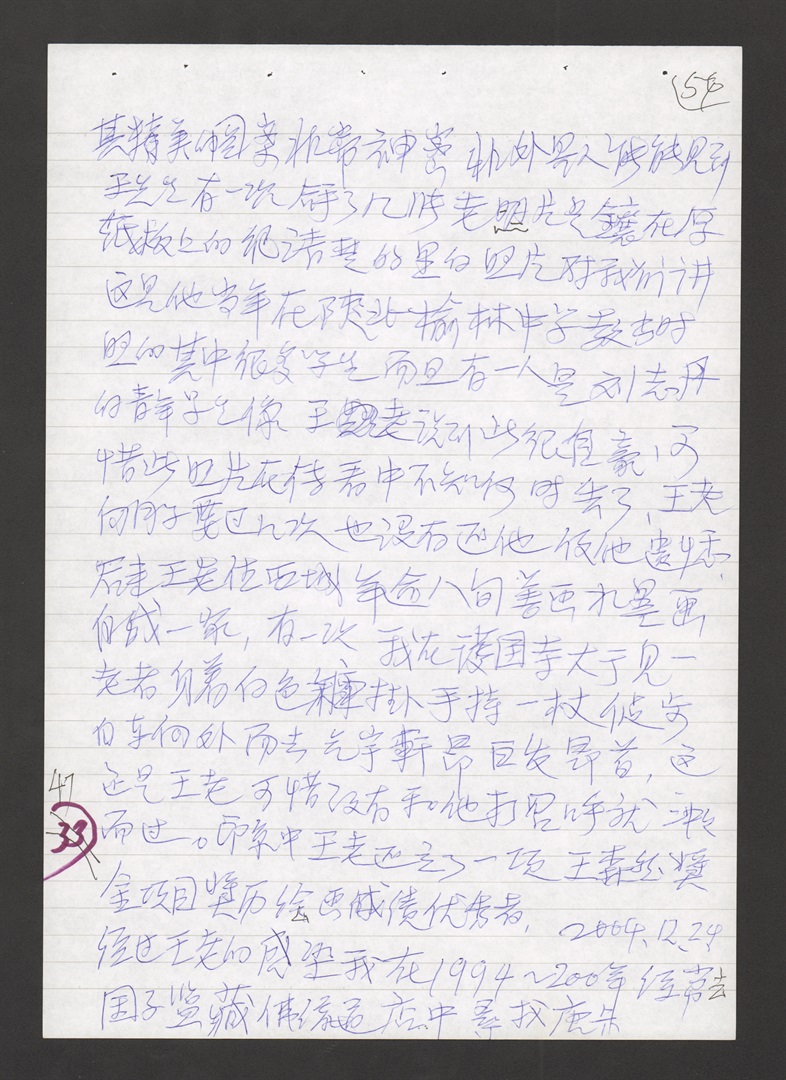 54
其精美的图案非常神密 非外界人能能见到
王先生有一次 拿了几张老照片是镶在厚
纸板上的很清楚的黑白照片对我们讲
这是他当年在陕北榆林中学教书时
照的其中很多学生 而且有一人是刘志丹
的青年学生像 王老说到此很自豪,可
惜此照片在传看中不知何时丢了,王老
向 要过几次也没有还他 使他遗
后来王老住西城 年令八旬善画水墨画
自成一家,有一次 我在护国寺大 见一
老者 身着白色 掛 手持一杖
自东向外而去 气宇軒昂 白发昂首,这
还是王老 可惜没有和他打 呼就
47
33
而过。 中王老还立了一项 王森然奨
金项目奨历绘画成绩优秀者, 2004.12.24
经过王老的感染我在1994~200 年经常去
国子监藏佛 店中寻找唐朱